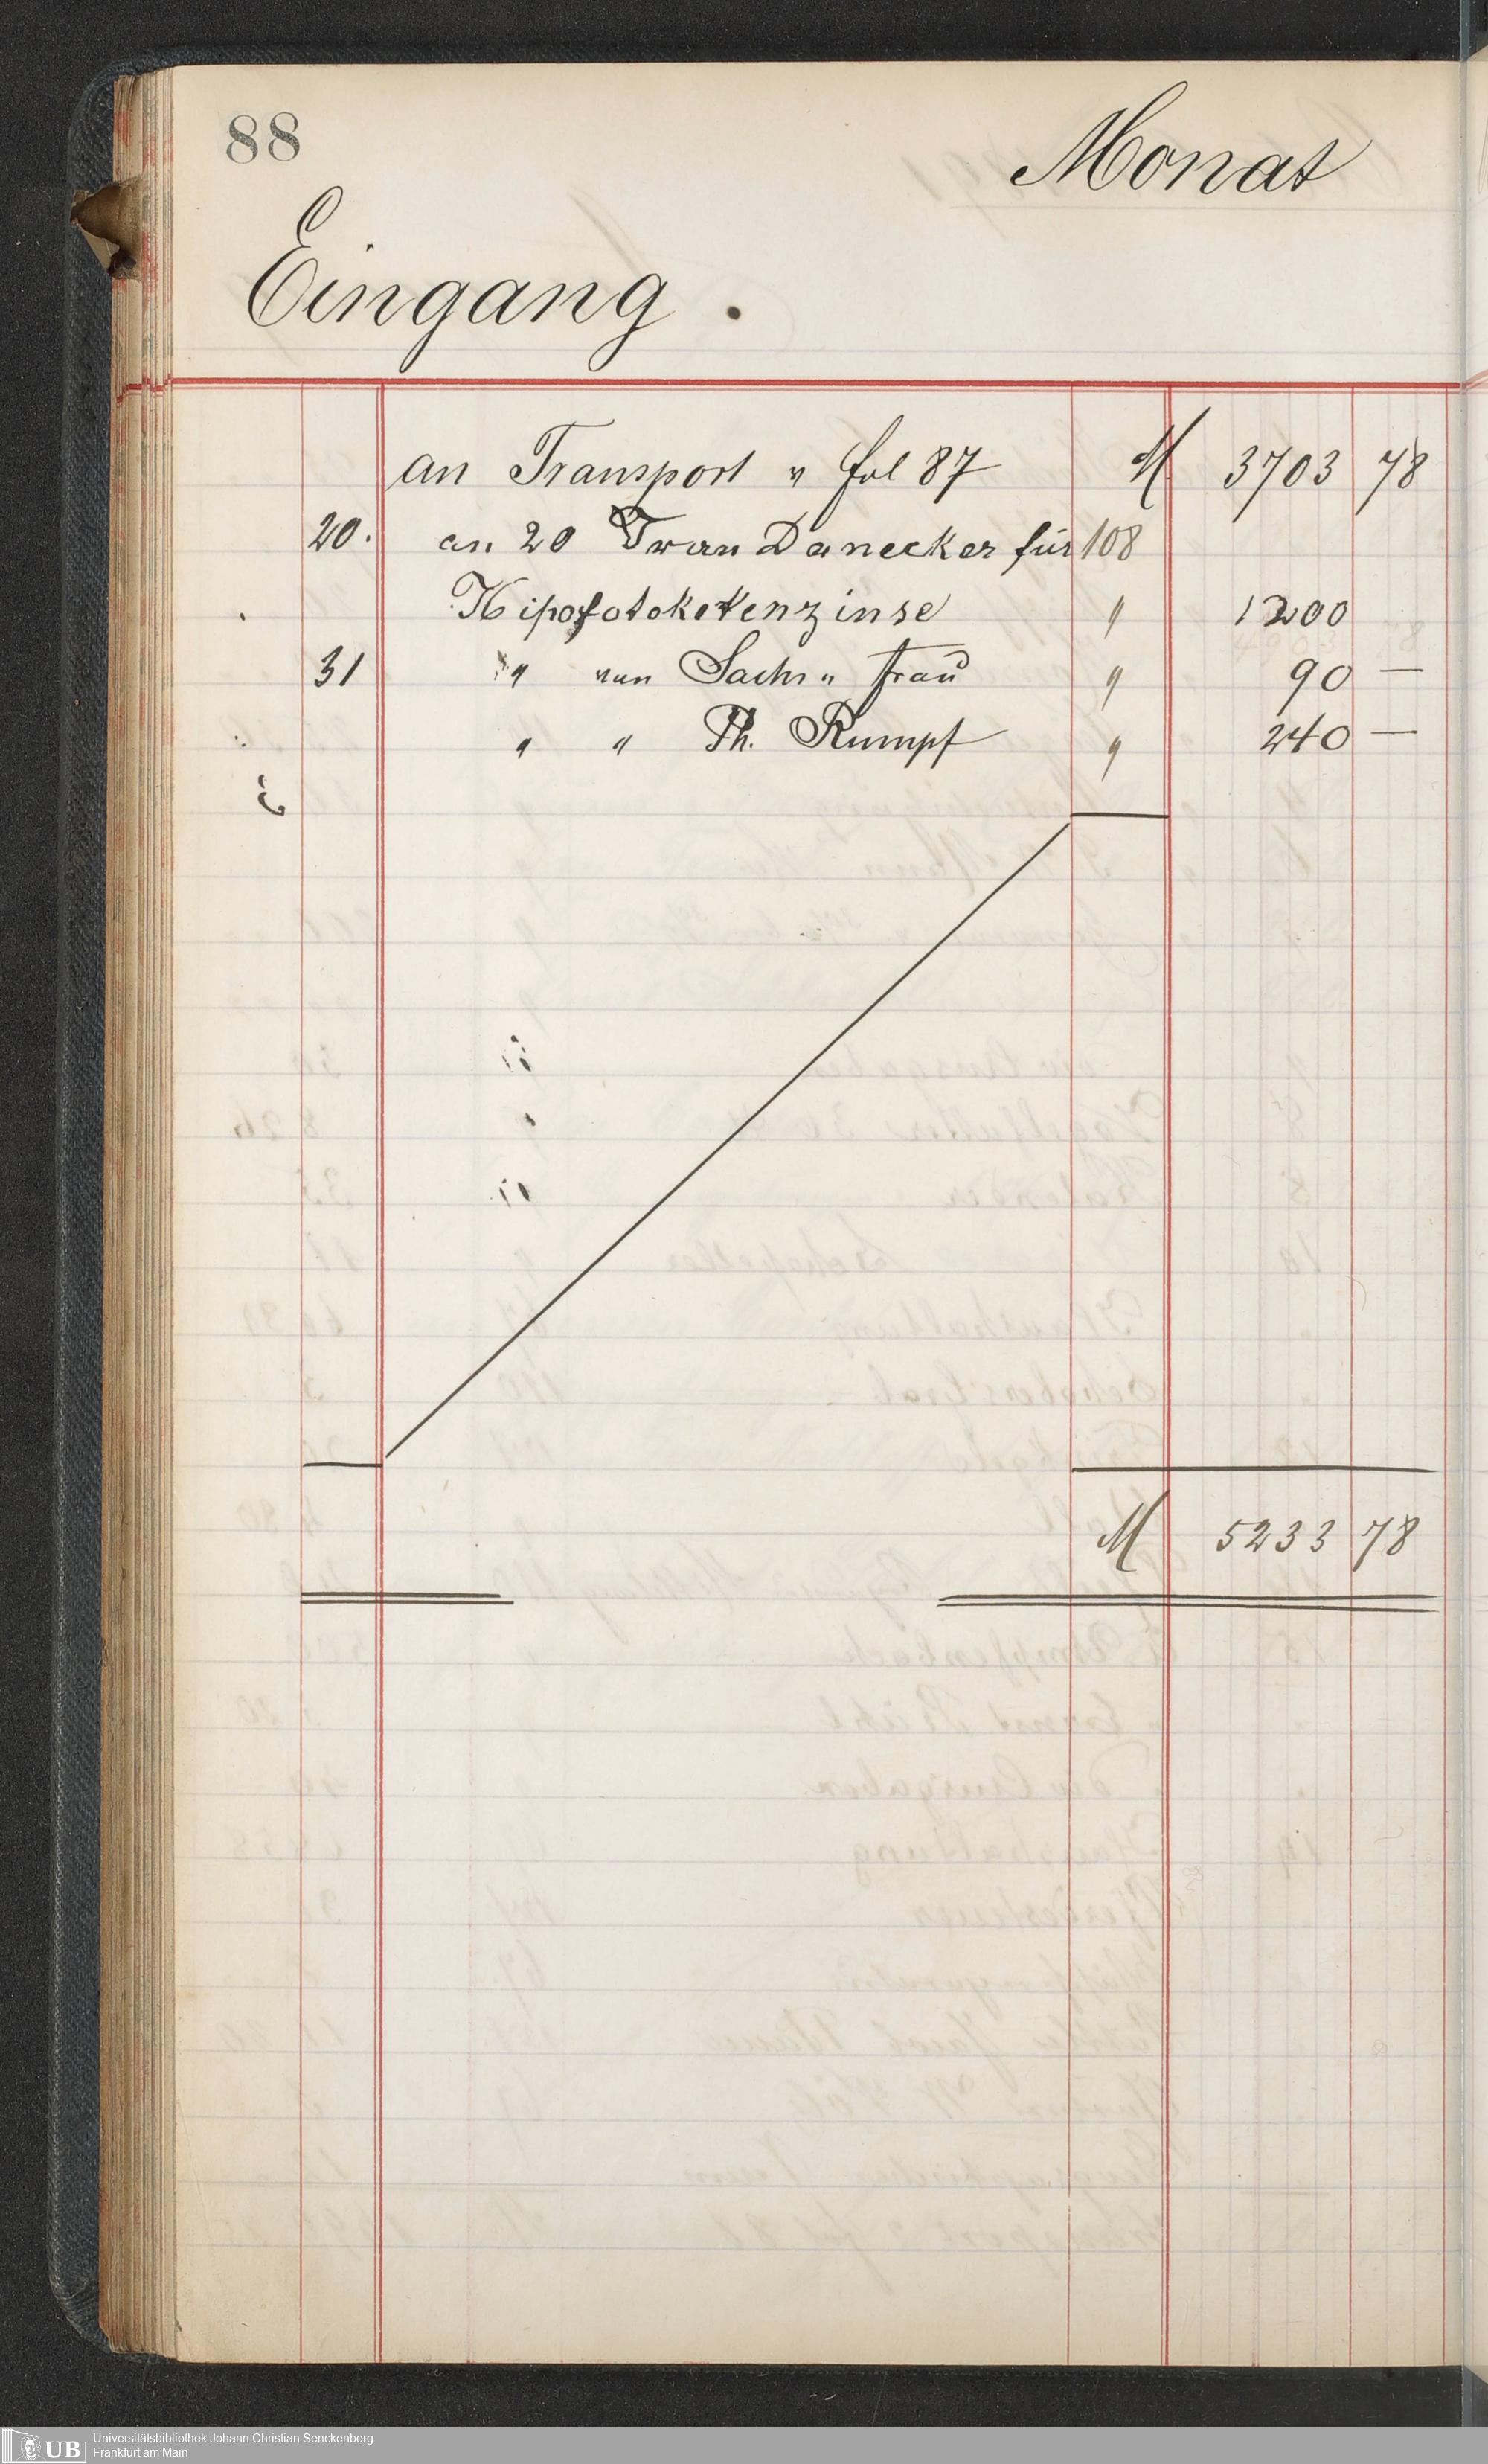 88
Monat
Eingang.
an Transport v fol 87 M 3703 78
20. an 20 Iwan Danecker für 108
Hipofotoketenzinse " 1200
31 " van Sachs " frau " 90 —
" " Th. Rumpf " 240 —
M 5233 78
UB
Universitätsbibliothek Johann Christian Senckenberg
Frankfurt am Main